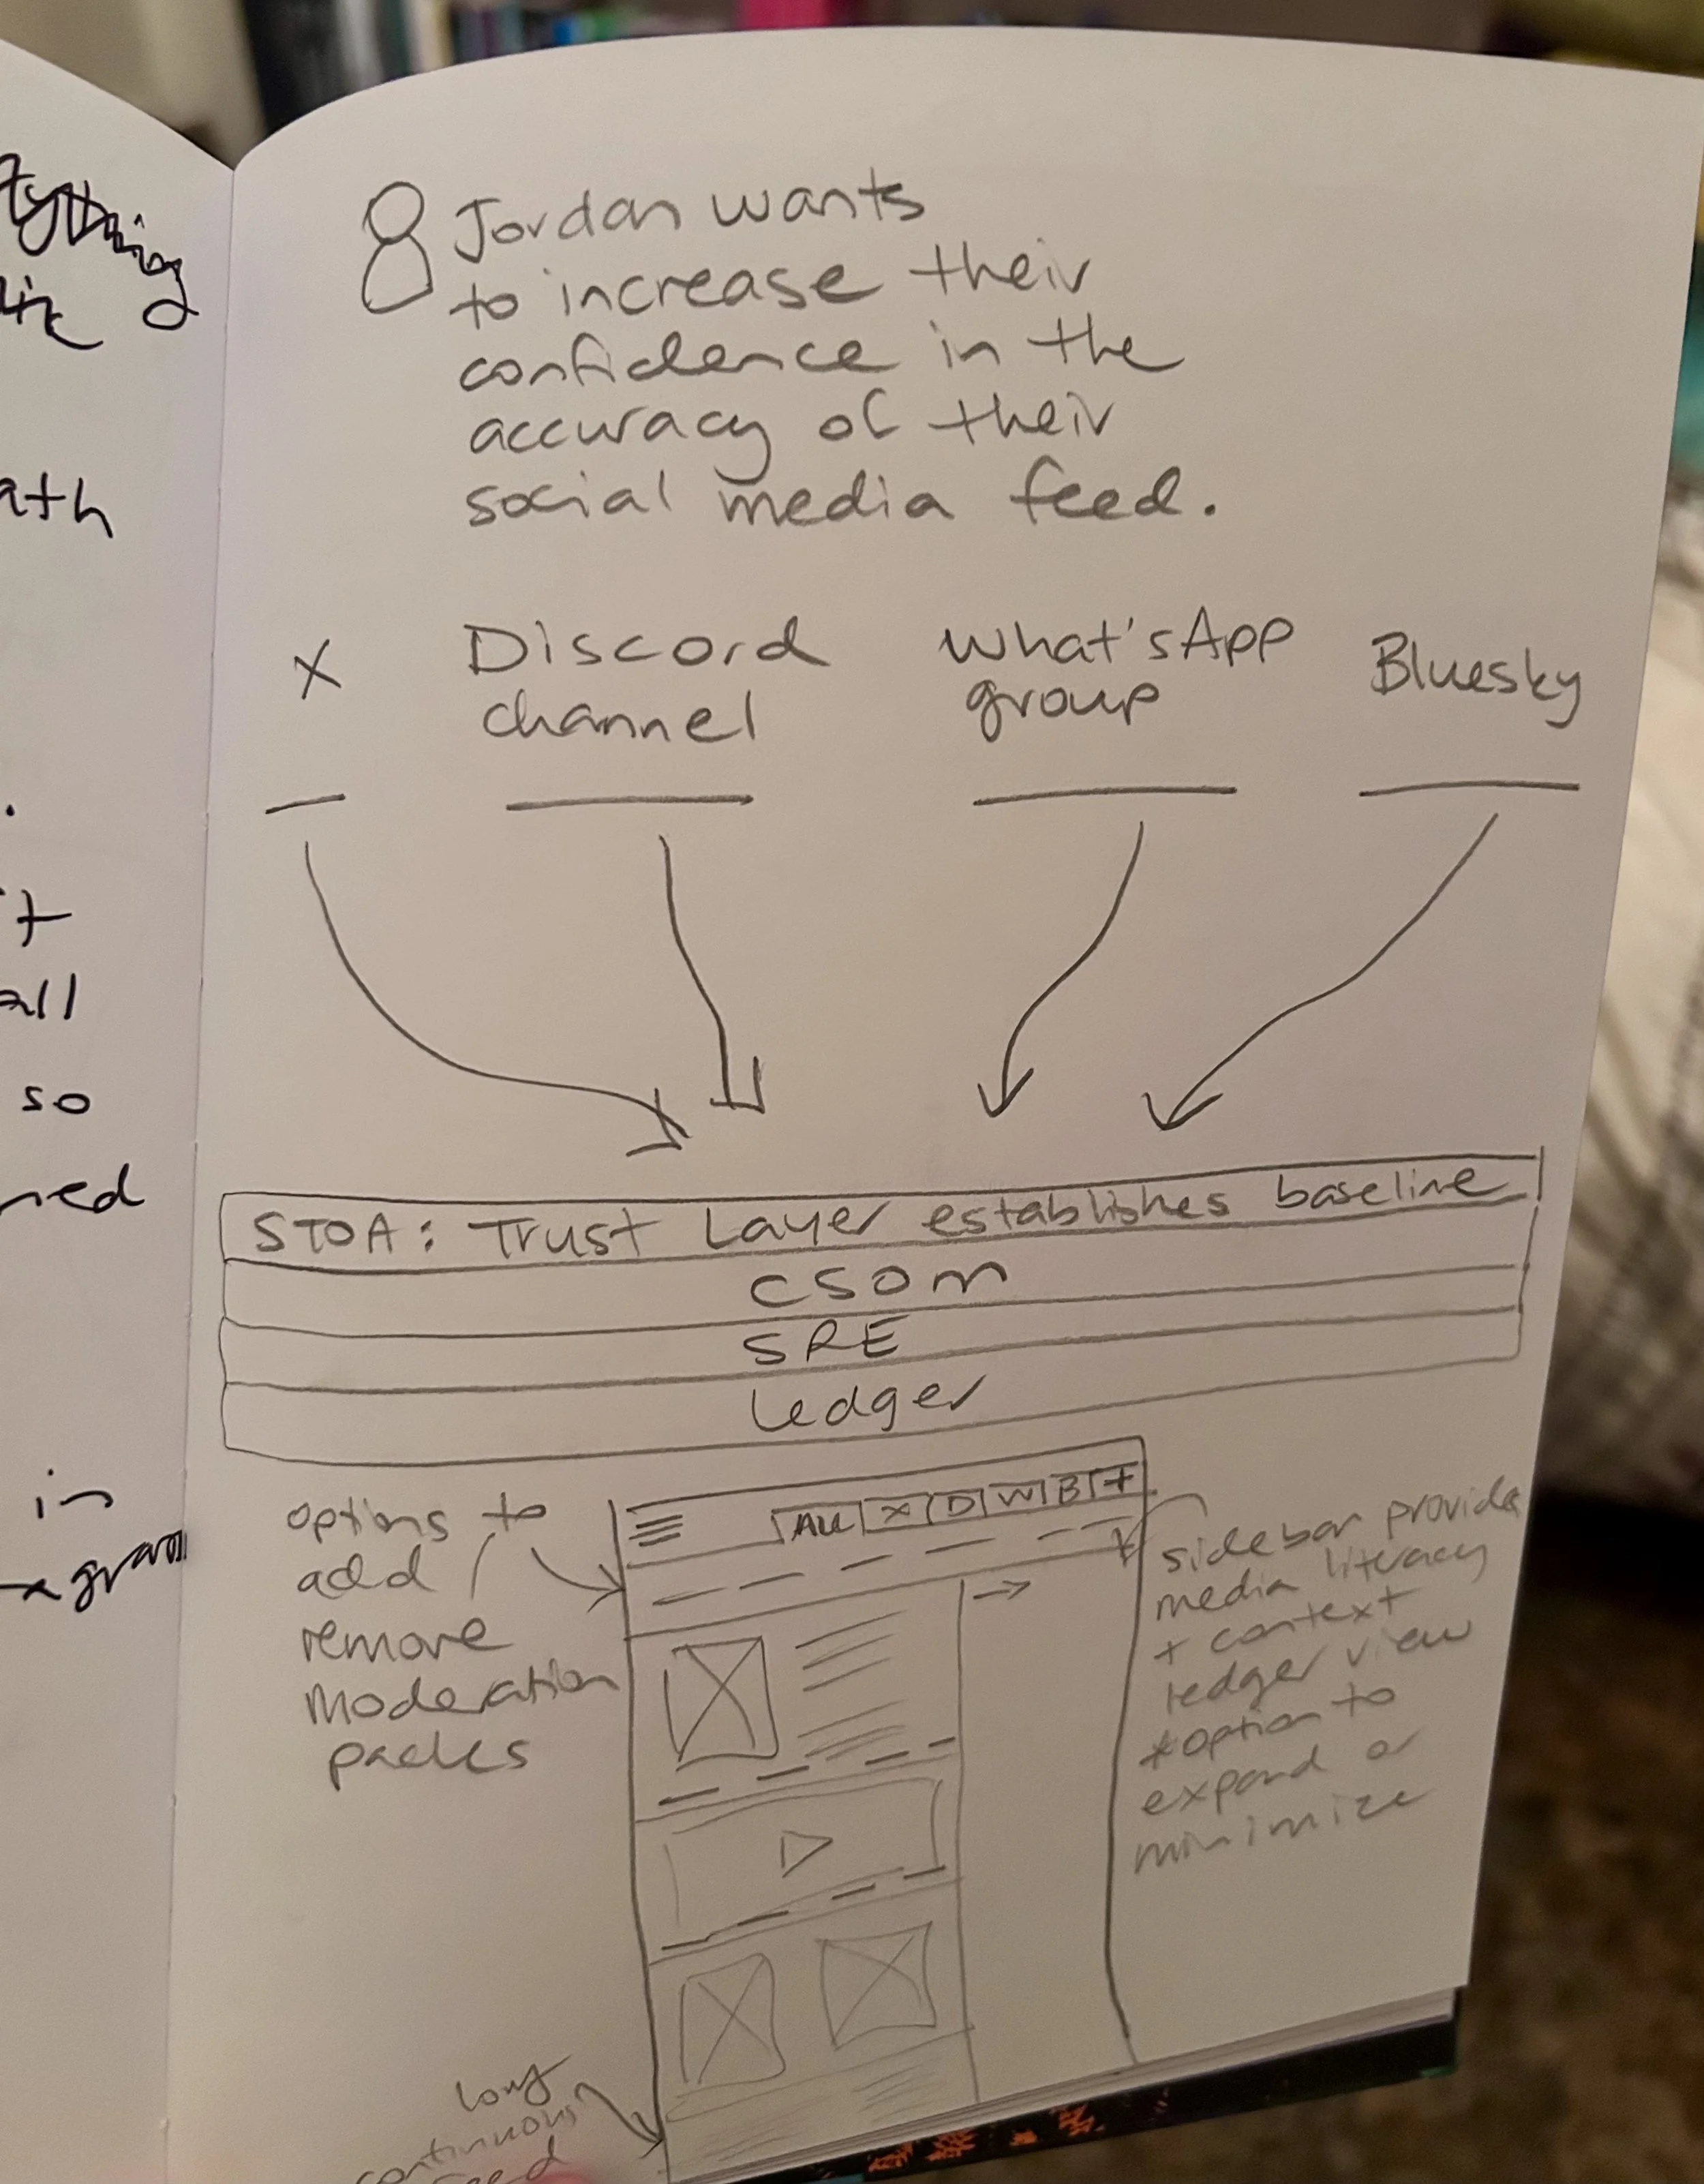 Jordan wants
to increase their
confidence in the
accuracy of their
social media feed.
X
Discord
channel
What'sApp
group
Bluesky
STOA: Trust Layer establishes baseline
CSOM
SRE
Ledger
options to
add /
remove
moderation
packs
ALL X D W B +
sidebar provides
media literacy
+ context
ledger view
*option to
expand or
minimize
long
continuous
feed
ath
all
so
in